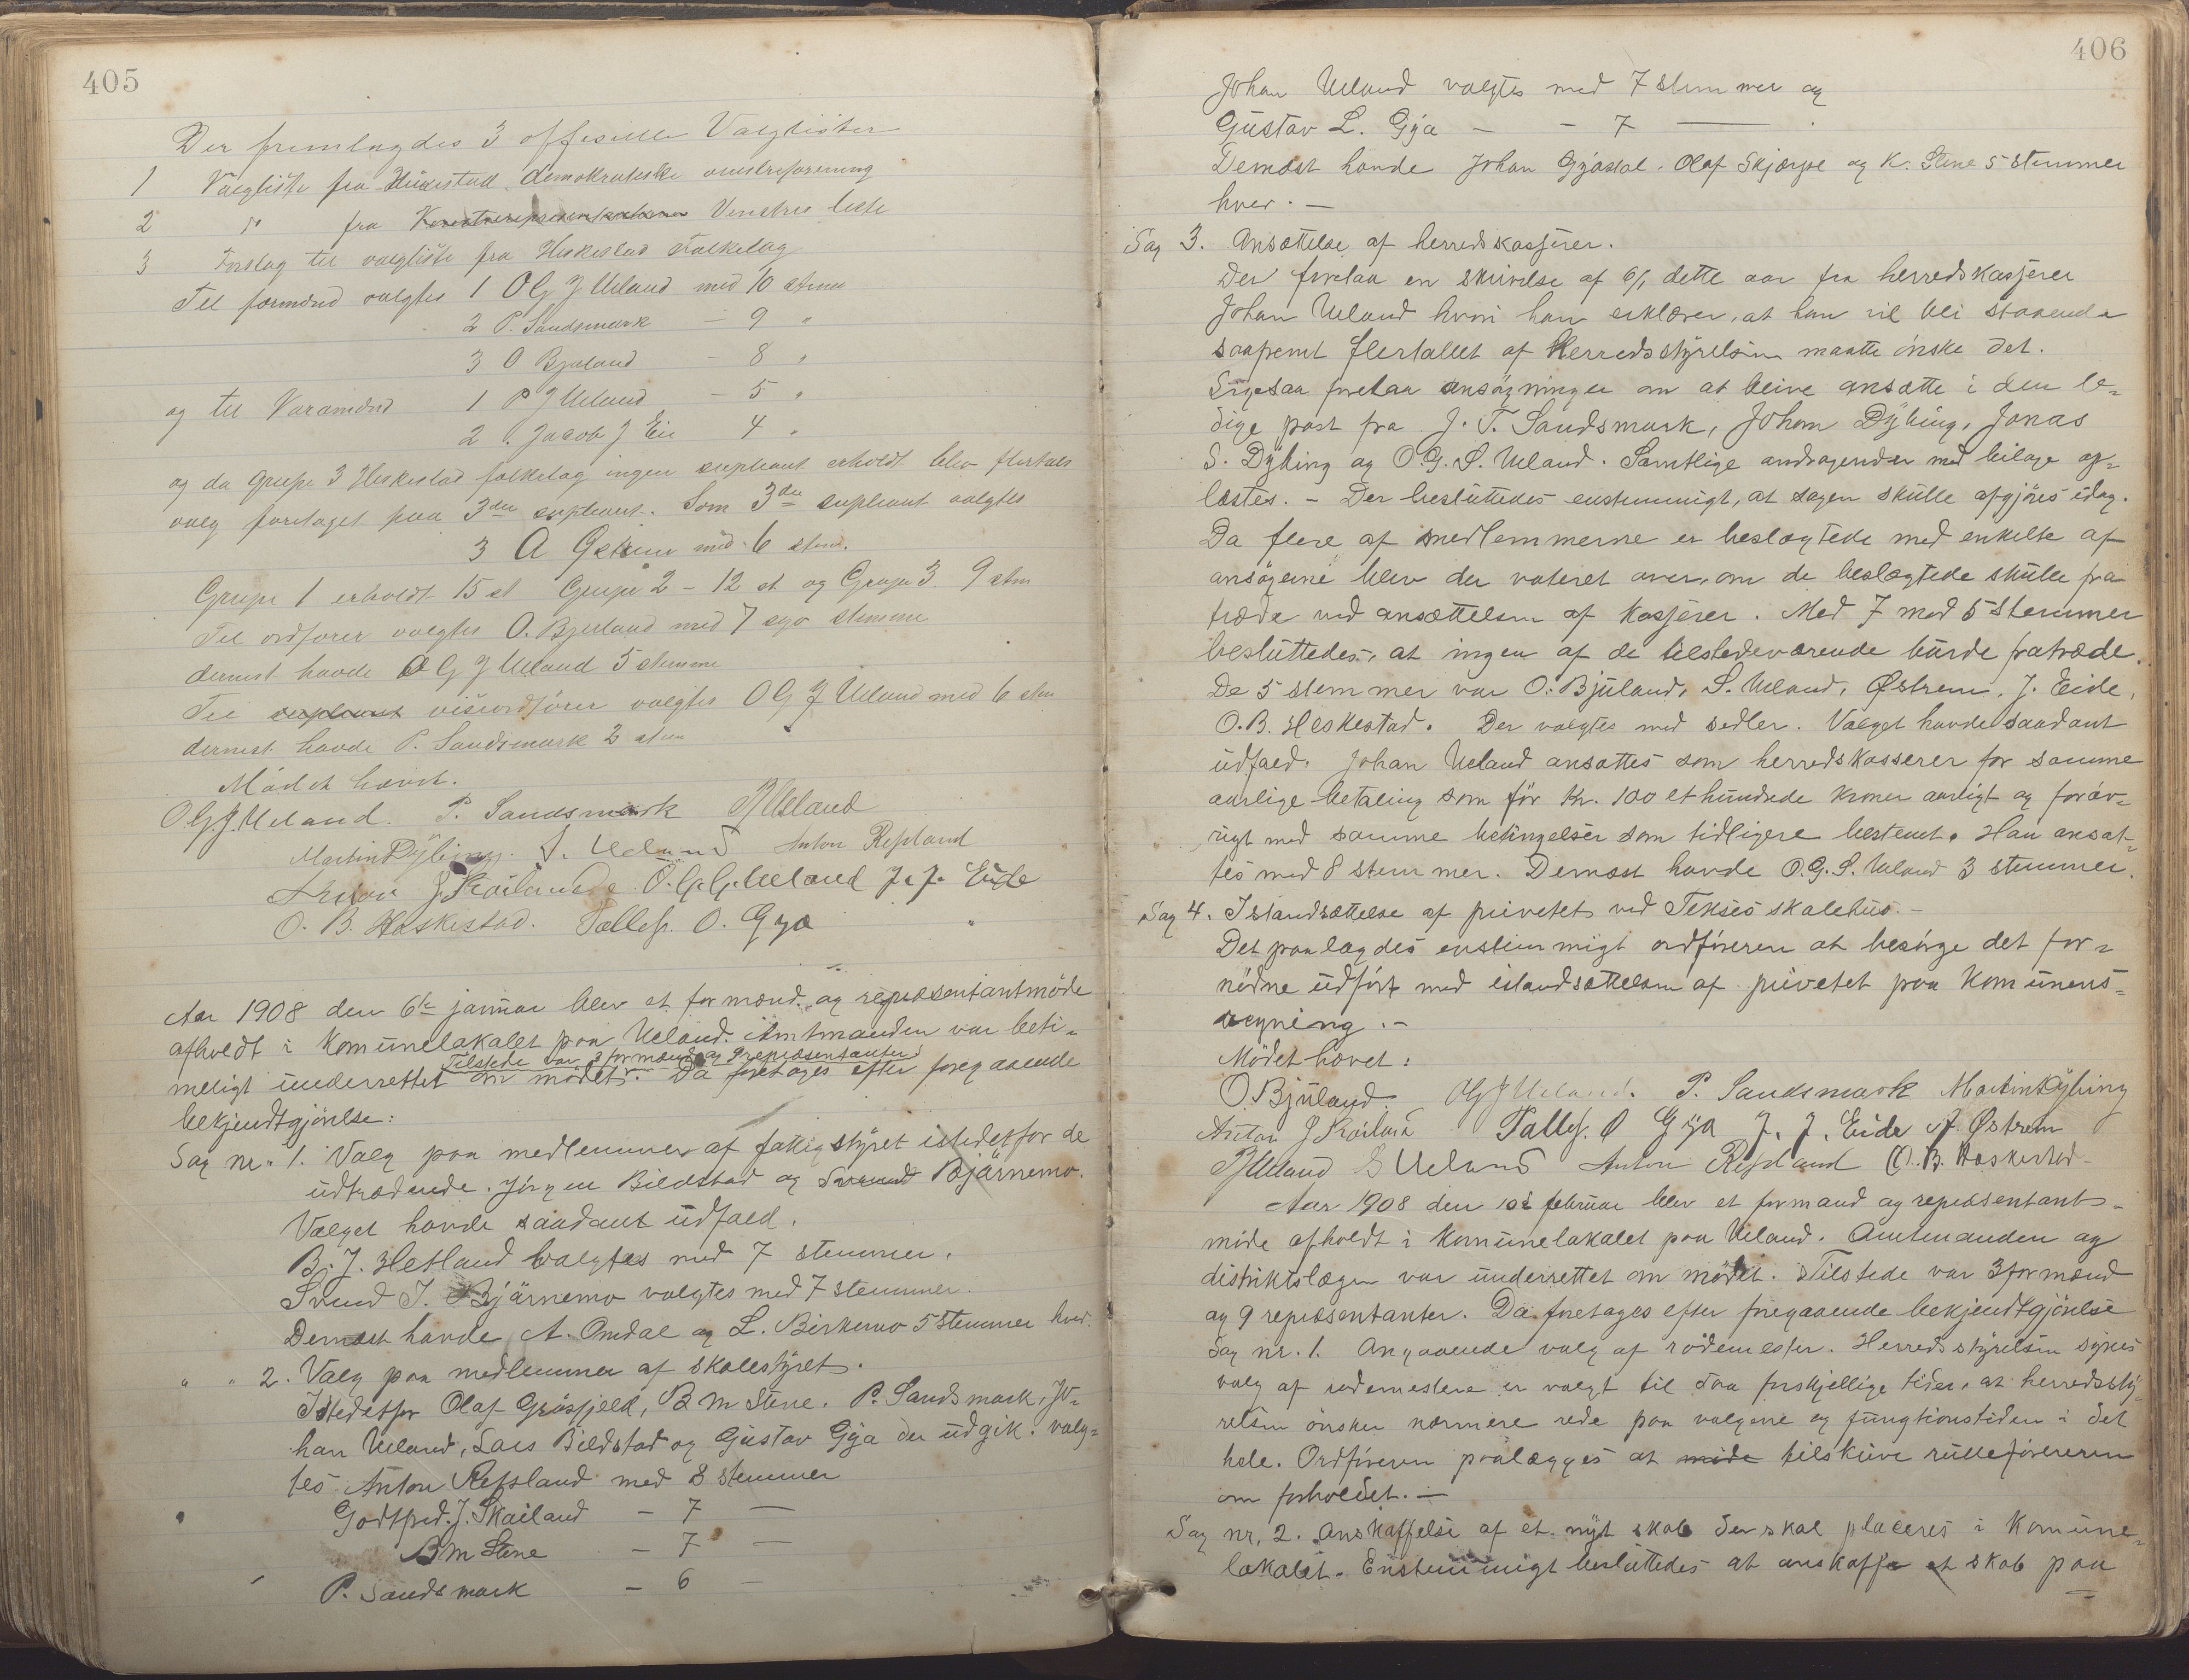 405
Der fremlagdes 3 offisielle Valglister
1 Valgliste fra Heskestad demokratiske venstreforening
2 " fra Venstres liste
3 Forslag til valgliste fra Heskestad Folkelag
Til formænd valgtes 1 O G J Ueland med 10 stem
2 P. Sandsmark - 9 "
3 O Bjuland - 8 "
og til Varamænd 1 P J Ueland - 5 "
2 Jacob J Eie 4 "
og da Grupe 3 Heskestad folkelag ingen supleant erholdt blev flertals
valg foretaget paa 3die supleant. Som 3die supleant valgtes
3 A Østrem med 6 stem.
Grupe 1 erholdt 15 st Grupe 2 - 12 st og Grupe 3 9 stm
Til ordfører valgtes O. Bjuland med 7 syv stemme
dernest havde O G J Ueland 5 stemme
Til supleant viseordfører valgtes O G J Ueland med 6 stm
dernest havde P. Sandsmark 2 stm
Mödet hævet.
O.G.J. Ueland. P. Sandsmark PJUeland
Martin Dÿbing. S. Ueland Anton Refsland
J Skailand O.G.G. Ueland J. J. Eide
O. B. Heskestad. Tallef. O. Gya
Aar 1908 den 6te januar blev et formænd og repræsentantmöde
afholdt i Komunelokalet paa Ueland. Amtmanden var beti-
Tilstede var 3 formænd og 9 repræsentanter
meligt underrettet om mödet. Da foretages efter foregaaende
bekjendtgjörelse:
Sag nr. 1. Valg paa medlemmer af fattigstÿret istedetfor de
udtrædende. Jörgen Bildstad og Svend Bjärnemo.
Valget havde saadant udfald.
B. J. Hetland valgtes med 7 stemmer.
Svend I. Bjärnemo valgtes med 7 stemmer.
Dernæst havde A. Omdal og L. Birkemo 5 stemmer hver.
" " 2. Valg paa medlemmer af skolestÿret.
Istedetfor Olaf Gråsfjeld, B M Stene. P. Sandsmark, Jo-
han Ueland, Lars Bildstad og Gustav Gÿa der udgik. valg-
tes Anton Refsland med 8 stemmer
Godtfred. J. Skailand - 7 —
B M Stene - 7 —
P. Sandsmark - 6 —
406
Johan Ueland valgtes med 7 stemmer og
Gustav L. Gÿa - - 7 —
Dernæst havde Johan Gÿasdal. Olaf Skjærpe og K. Stene 5 stemmer
hver. —
Sag 3. Ansættelse af herredskasserer.
Der forelaa en skrivelse af 6/1 dette aar fra herredskasserer
Johan Ueland hvori han erklærer, at han vil bli staaende
saafremt flertallet af Herredsstÿrelsen maatte önske det.
Ligesaa forelaa ansögninger om at blive ansatte i den le-
dige post fra J. T. Sandsmark, Johan Dÿbing, Jonas
S. Dÿbing og O.G.S. Ueland. Samtlige andragender med bilage op-
læstes. - Der besluttedes enstemmigt, at sagen skulle afgjöres idag.
Da flere af medlemmerne er beslægtede med enkelte af
ansögerne blev der voteret over, om de beslægtede skulle fra-
træde ved ansættelsen af kasserer. Med 7 mod 5 stemmer
besluttedes, at ingen af de tilstedeværende burde fratræde.
De 5 stemmer var O. Bjuland, S. Ueland, Østrem, J. Eide,
O. B. Heskestad. Der valgtes med sedler. Valget havde saadant
udfald. Johan Ueland ansattes som herredskasserer for samme
aarlige betaling som för Kr. 100 et hundrede kroner aarligt og foröv-
rigt med samme betingelser som tidligere bestemt. Han ansat-
tes med 8 stemmer. Dernæst havde O.G.S. Ueland 3 stemmer.
Sag 4. Istandsættelse af privetet ved Tekses skolehus. -
Det paalagdes enstemmigt ordföreren at besörge det for-
nödne udfört med istandsættelsen af privetet paa komunens
regning. -
Mödet hævet:
O. Bjuland OGJUeland. P. Sandsmark Martin Dÿbing
Anton J Skailand Tallef. O Gÿa J. J. Eide A. Østrem
PJUeland S Ueland Anton Refsland O. B. Heskestad
Aar 1908 den 10de februar blev et formand og repræsentant-
möde afholdt i Komunelokalet paa Ueland. Amtmanden og
distriktslægen var underrettet om mödet. Tilstede var 3 formænd
og 9 repræsentanter. Da foretages efter foregaaende bekjendtgjörelse
Sag nr. 1. Angaaende valg af rodemester. Herredsstÿrelsen sÿnes
valg af rodemestere er valgt til saa forskjellige tider, at herredsstÿ-
relsen önsker nærmere rede paa valgene og fungtionstiden i det
hele. Ordföreren paalægges at möde tilskrive rulleföreren
om forholdet. —
Sag nr. 2. Anskaffelse af et nÿt skab der skal placeres i komune-
lokalet. Enstemmigt besluttedes at anskaffe et skab paa